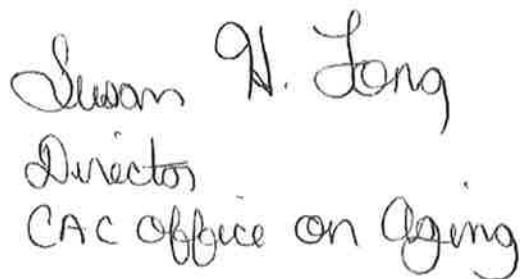 Susan H. Long
Director
CAC Office on Aging